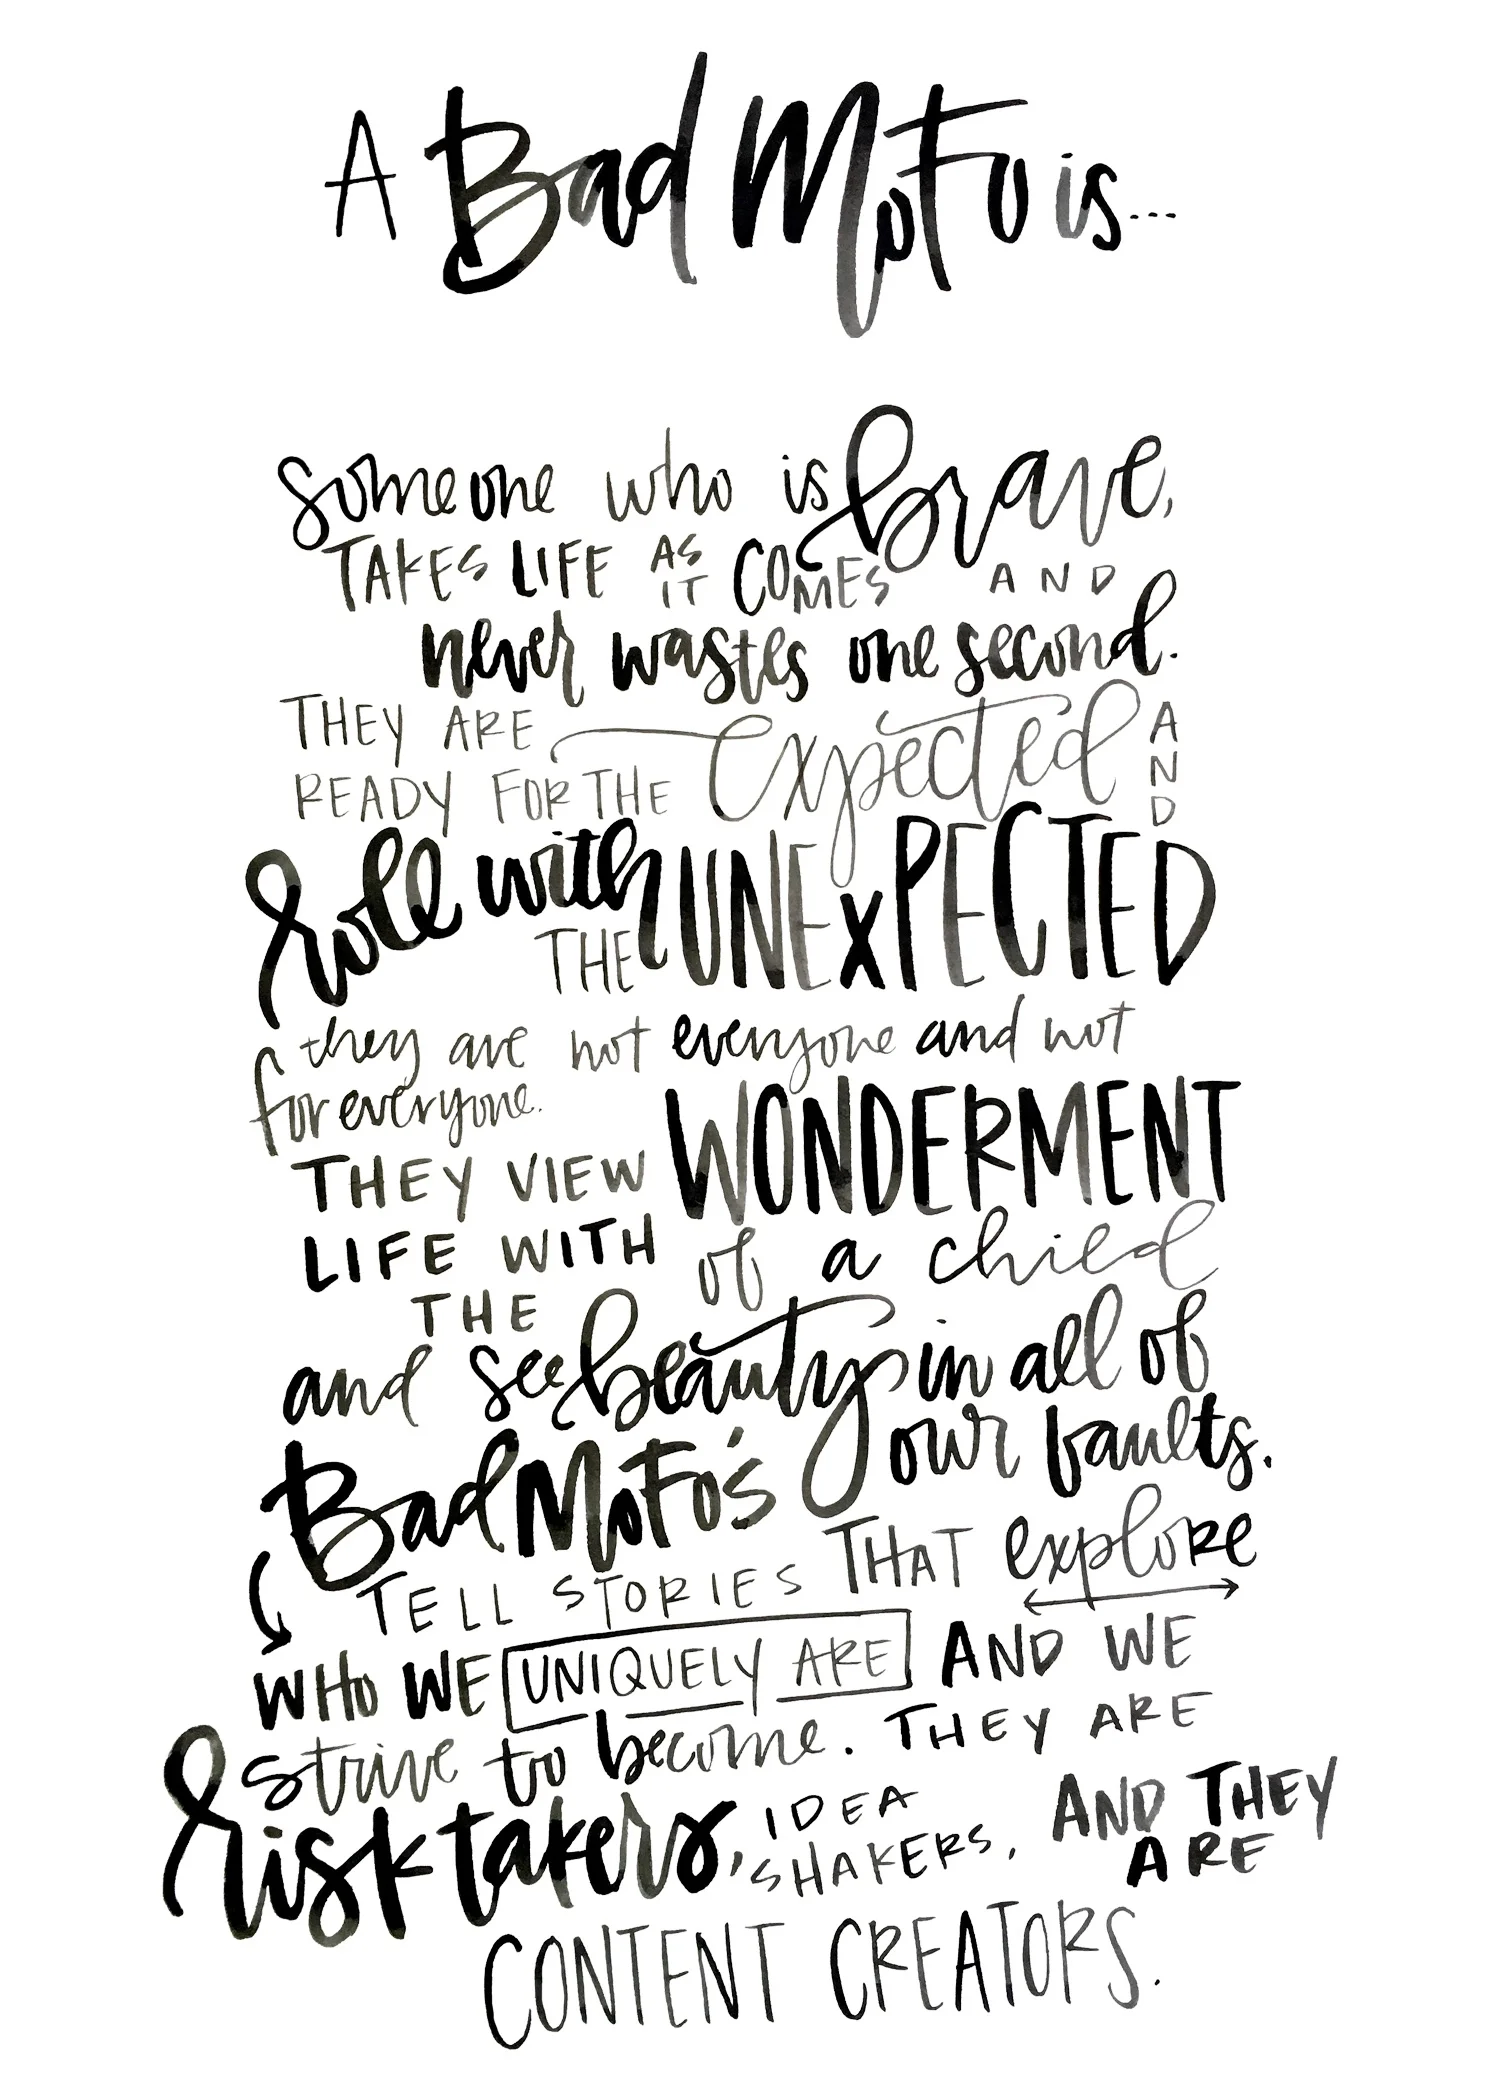 A Bad MoFo is...
someone who is brave,
TAKES LIFE AS IT COMES AND
never wastes one second.
THEY ARE
READY FOR THE expected AND
roll with
THE UNEXPECTED
they are not everyone and not
for everyone.
THEY VIEW
LIFE WITH
THE
WONDERMENT
of a child
and see beauty in all of
our faults.
Bad MoFo's
TELL STORIES THAT explore
WHO WE UNIQUELY ARE AND WE
strive to become. THEY ARE
risk takers, IDEA
SHAKERS, AND THEY
ARE
CONTENT CREATORS.